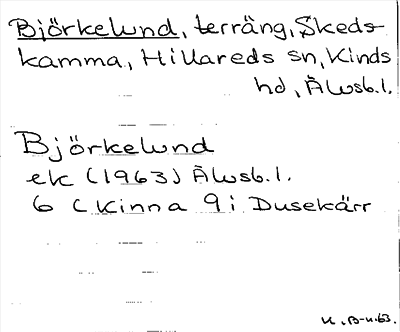 Björkelund, terräng, Skeds-
kamma, Hillareds sn, Kinds
hd, Älvsb. l.
Björkelund
ek (1963) Älvsb. l.
6 C Kinna 9 i Dusekärr